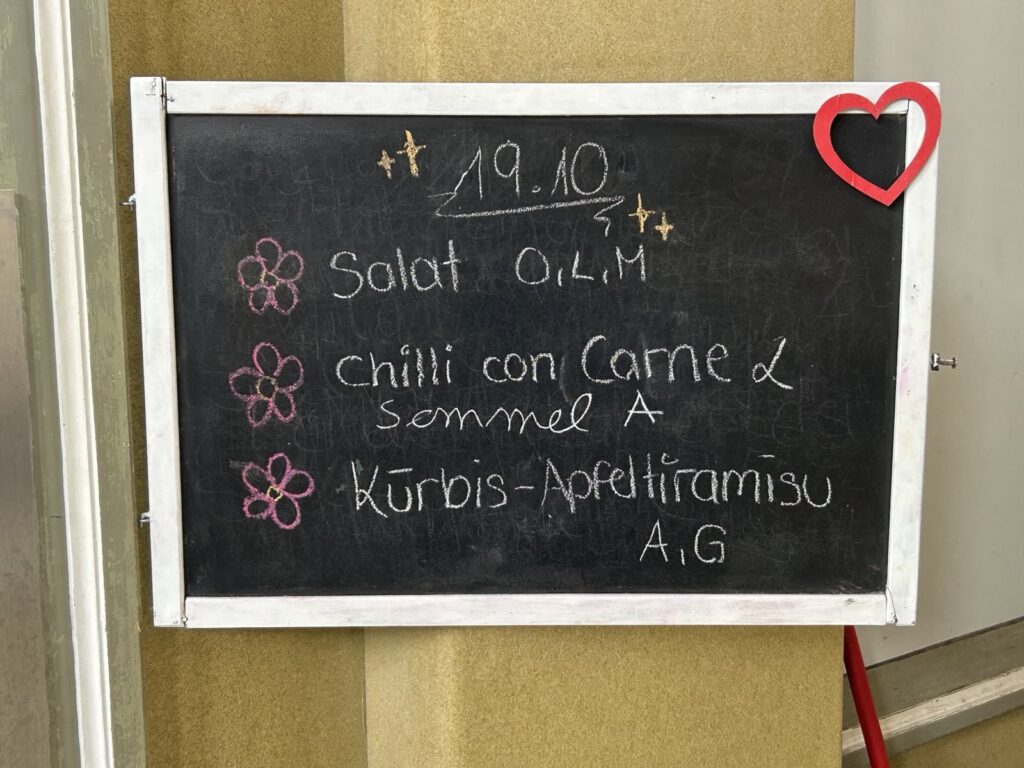 19.10
Salat O,L,M
Chilli con Carne &
Semmel A
Kürbis-Apfeltiramisu
A,G